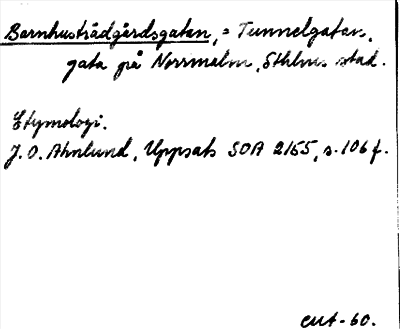 Barnhusträdgårdsgatan, = Tunnelgatan,
gata på Norrmalm, Sthlms stad.
Etymologi.
J. O. Ahnlund, Uppsats SOA 2155, s. 106 f.
-60.